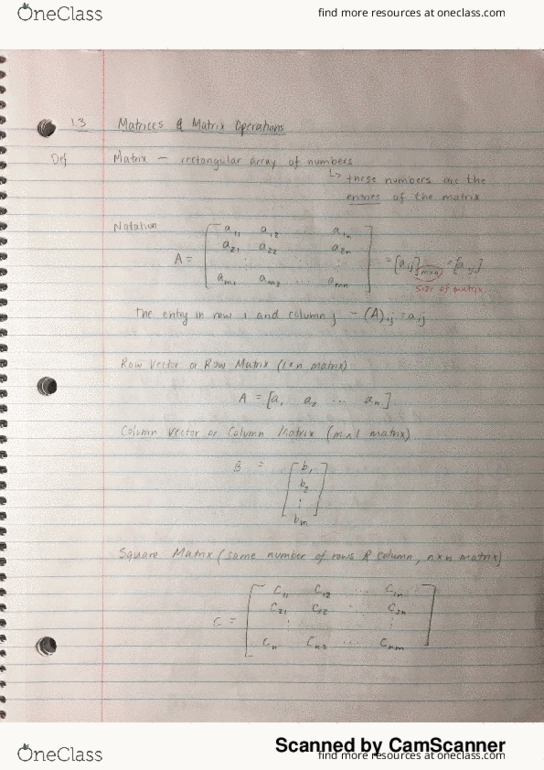 OneClass find more resources at oneclass.com
1.3 Matrices & Matrix Operations
Def Matrix – rectangular array of numbers
↳ these numbers are the
entries of the matrix
Notation
a₁₁ a₁₂ ... a₁ₙ
a₂₁ a₂₂ a₂ₙ
A = = [aᵢⱼ]ₘₓₙ = [aᵢⱼ]
aₘ₁ aₘ₂ ... aₘₙ
size of matrix
the entry in row i and column j – (A)ᵢⱼ = aᵢⱼ
Row Vector or Row Matrix (1×n matrix)
A = [a₁ a₂ ... aₙ]
Column Vector or Column Matrix (m×1 matrix)
B = b₁
b₂
⋮
bₘ
Square Matrix (same number of rows & column, n×n matrix)
C₁₁ C₁₂ ... C₁ₙ
C₂₁ C₂₂ ... C₂ₙ
C =
Cₙ₂ ...
Scanned by CamScanner
OneClass find more resources at oneclass.com